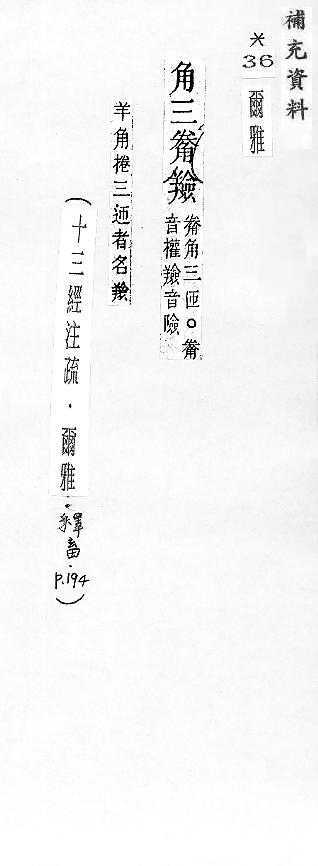 補充資料
*36 爾雅
角三觠羷
觠角三匝。觠
音權羷音險
羊角捲三迊者名羷
（十三經注疏．爾雅．釋畜．P.194）